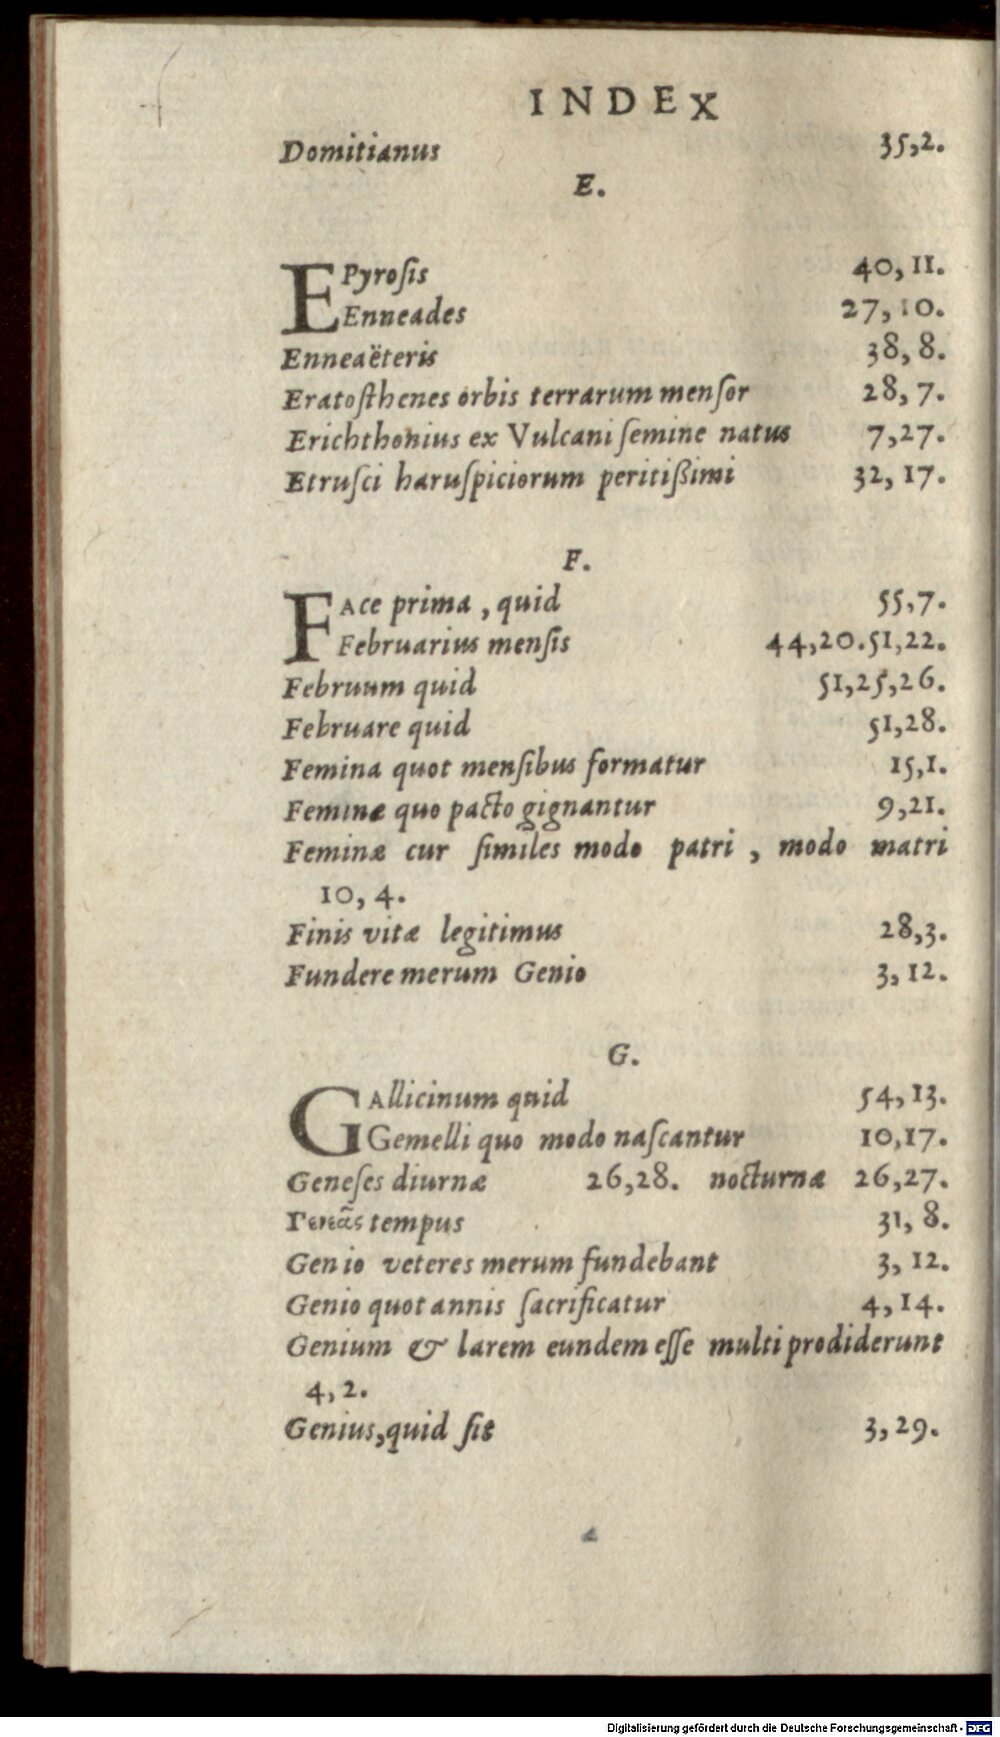 INDEX
Domitianus 35,2.
E.
EPyroſis 40, 11.
Enneades 27, 10.
Enneaëteris 38, 8.
Eratoſthenes orbis terrarum menſor 28, 7.
Erichthonius ex Vulcani ſemine natus 7,27.
Etruſci haruſpiciorum peritißimi 32, 17.
F.
FAce prima, quid 55,7.
Februarius menſis 44,20.51,22.
Februum quid 51,25,26.
Februare quid 51,28.
Femina quot menſibus formatur 15,1.
Feminæ quo pacto gignantur 9,21.
Feminæ cur ſimiles modo patri, modo matri
10, 4.
Finis vitæ legitimus 28,3.
Fundere merum Genio 3, 12.
G.
GAllicinum quid 54, 13.
Gemelli quo modo naſcantur 10,17.
Geneſes diurnæ 26,28. nocturnæ 26,27.
Γενεᾶς tempus 31, 8.
Genio veteres merum fundebant 3, 12.
Genio quot annis ſacrificatur 4, 14.
Genium & larem eundem eſſe multi prodiderunt
4, 2.
Genius, quid ſit 3, 29.
Digitalisierung gefördert durch die Deutsche Forschungsgemeinschaft - DFG